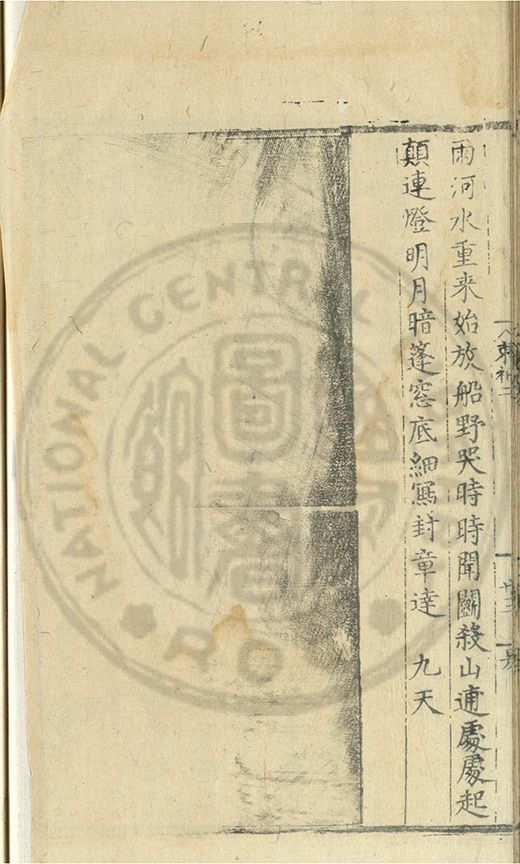 雨河水重来始放船野哭時時聞鬪殺山逋處處起
顛連燈明月暗篷窓底細寫封章達　九天
廿三
NATIONAL CENTRAL
R O